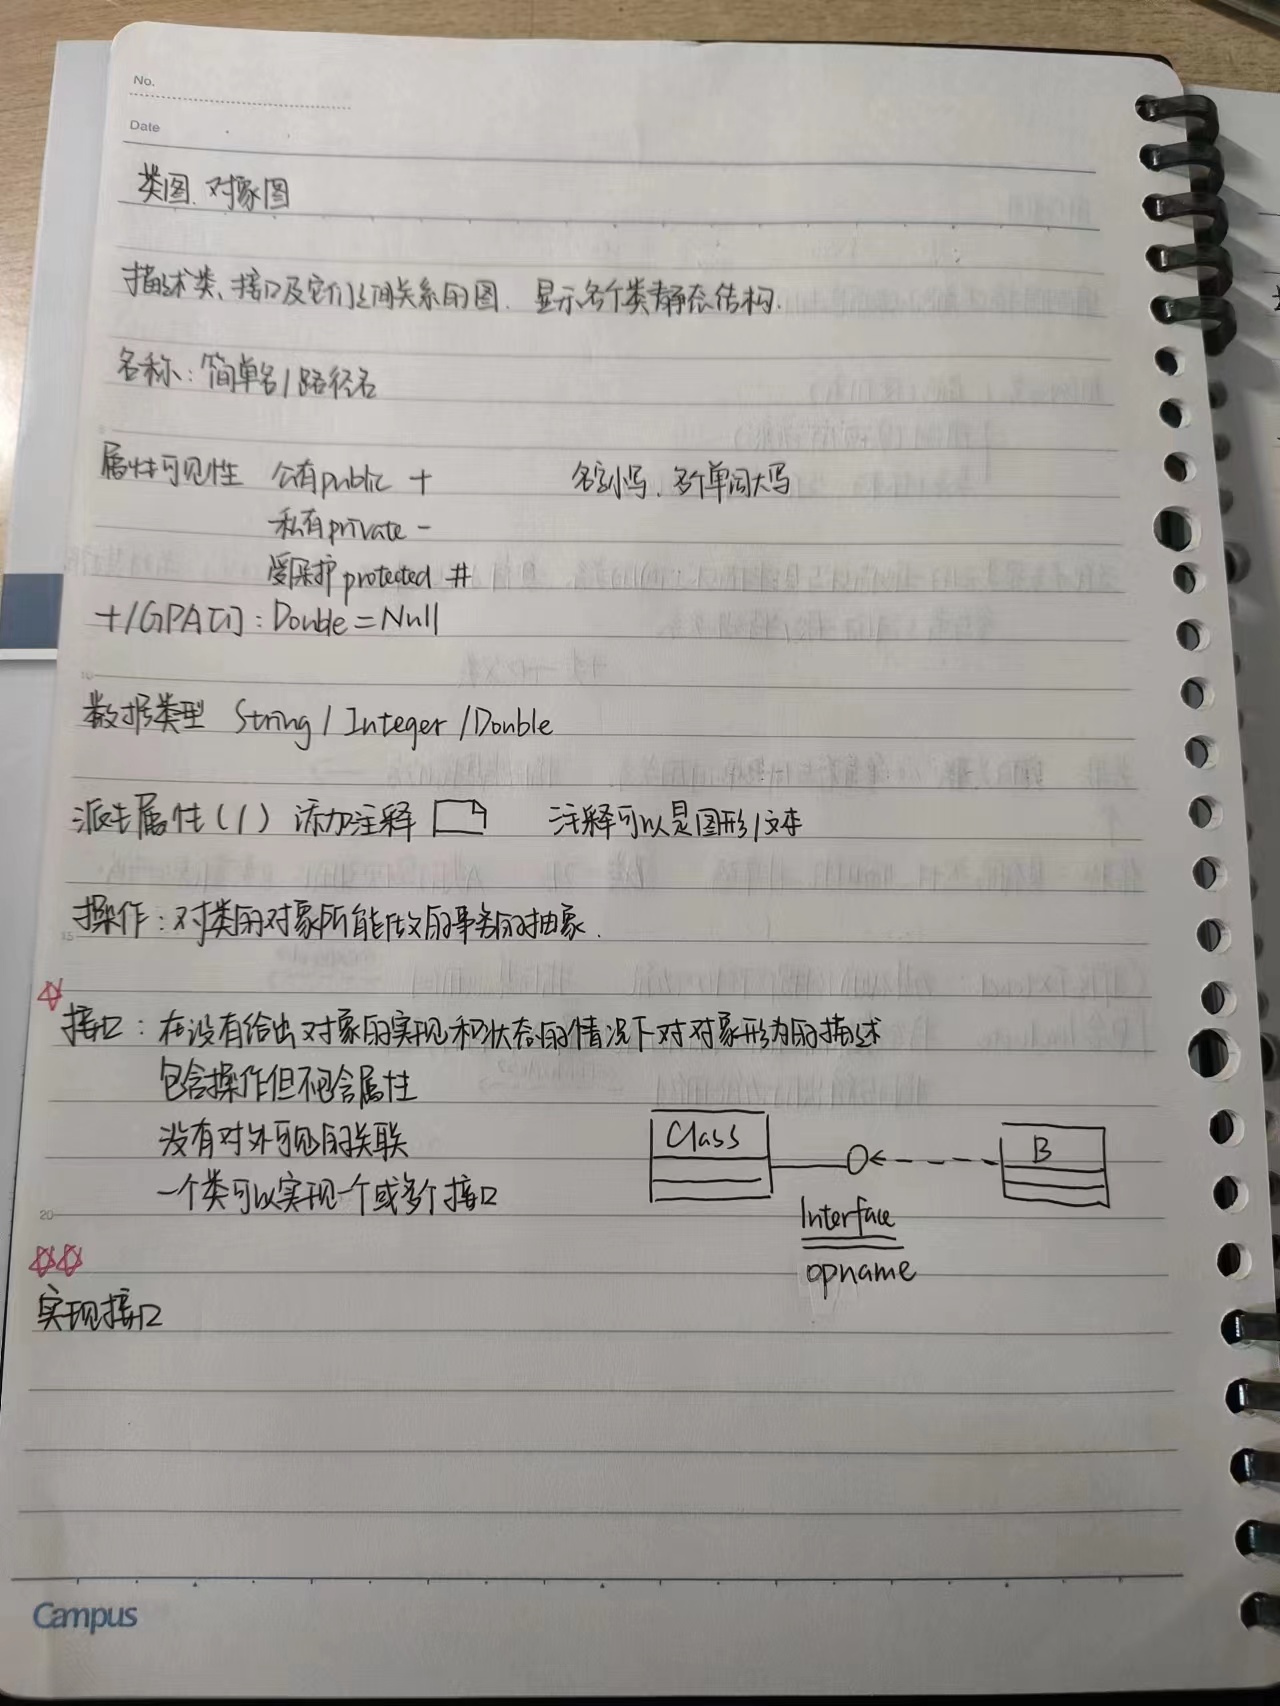 No.
Date
类图、对象图
描述类、接口及它们之间关系的图. 显示各个类静态结构.
名称:简单名/路径名
属性可见性 公有public + 名字小写、多个单词大写
私有private -
受保护protected #
+/GPA[1]:Double=Null
数据类型 String/Integer/Double
派生属性(/) 添加注释 注释可以是图形/文本
操作:对类的对象所能做的事务的抽象.
接口:在没有给出对象的实现和状态的情况下对对象形为的描述
包含操作但不包含属性
没有对外可见的关联
Class B
一个类可以实现一个或多个接口
Interface
opname
20
实现接口
Campus